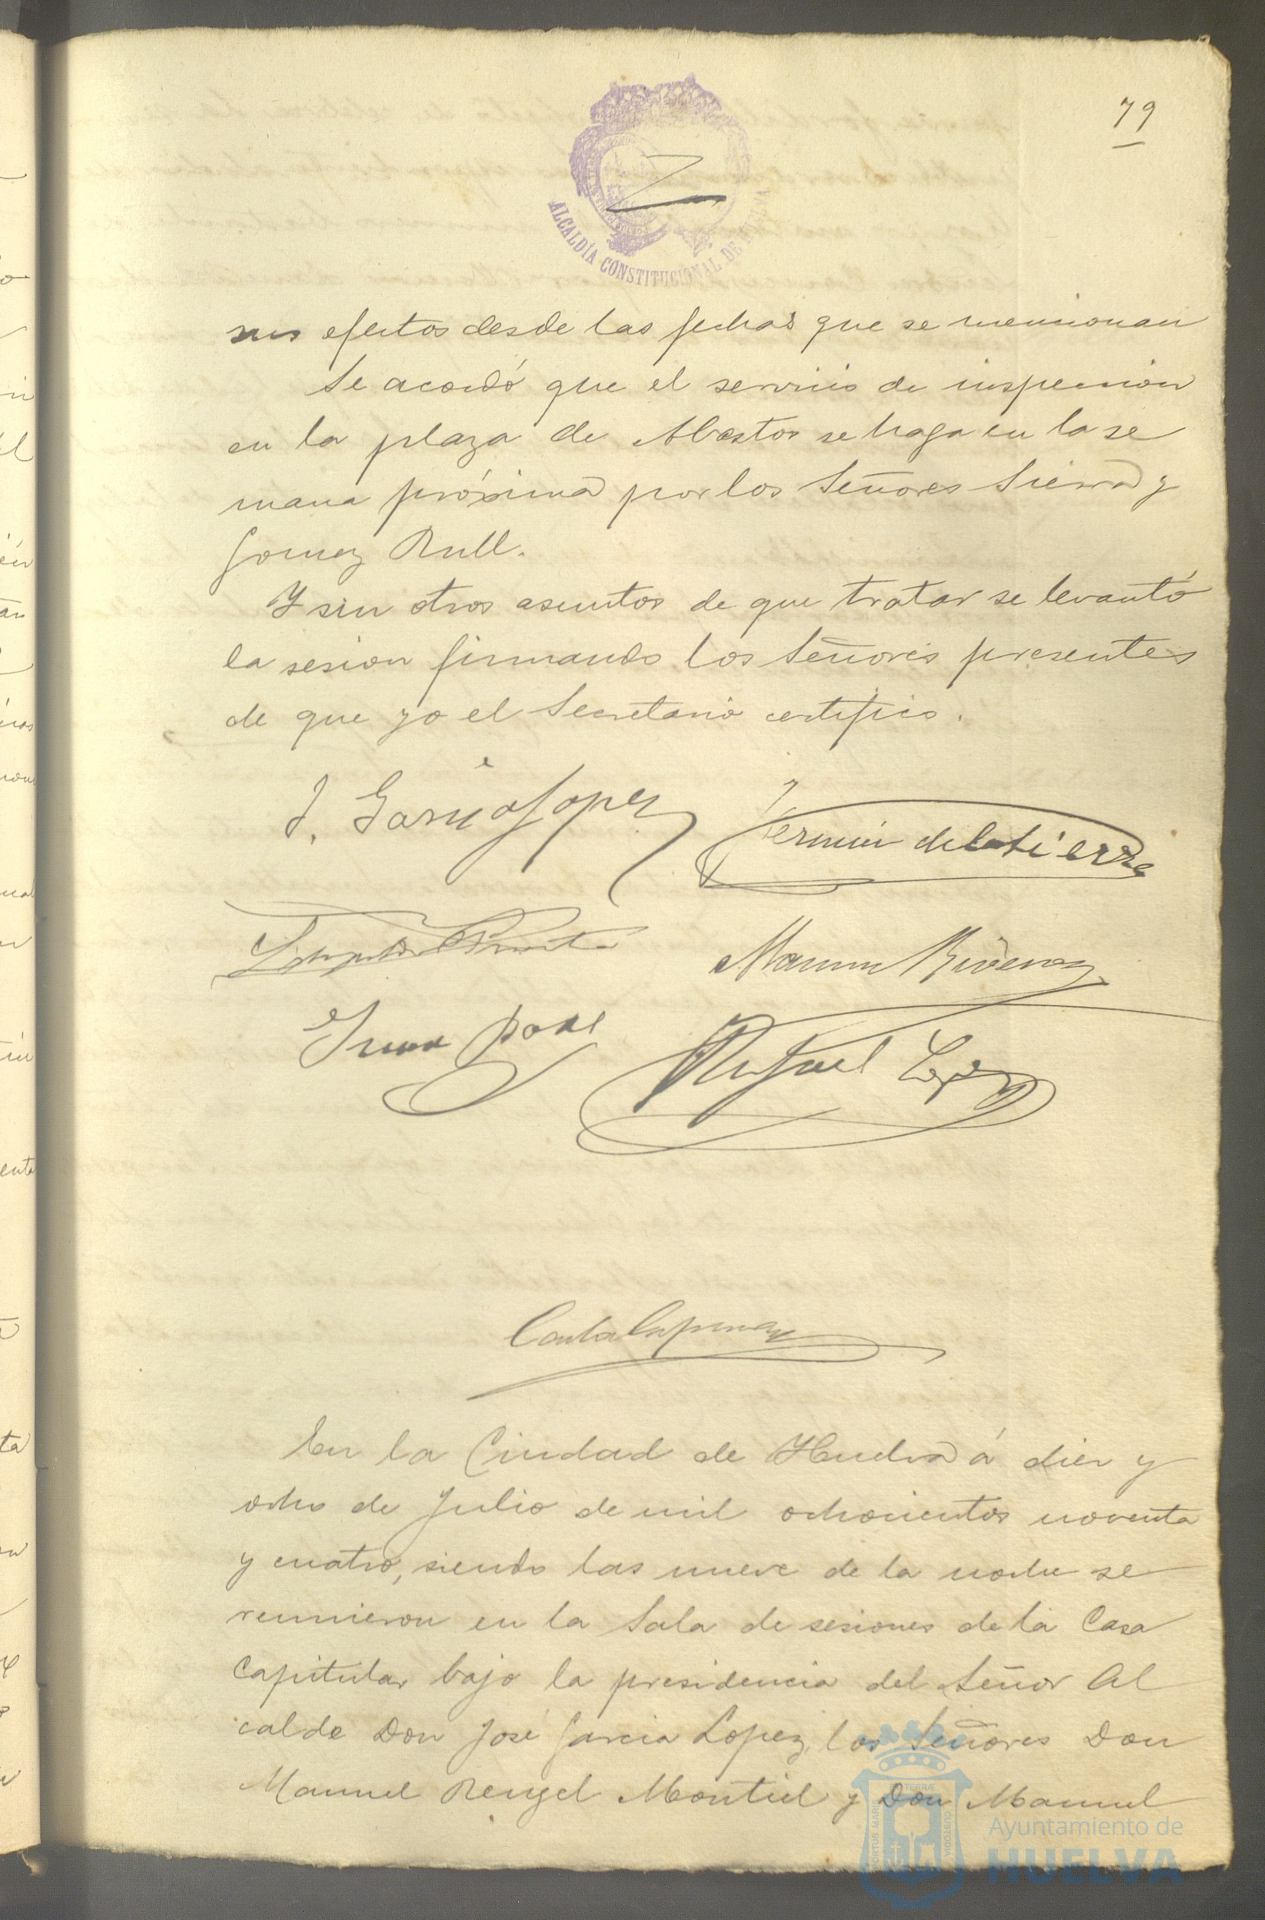 79
ALCALDÍA CONSTITUCIONAL DE HUELVA
sus efectos desde las fechas que se mencionan
Se acordó que el servicio de inspeccion
en la plaza de Abastos se haga en la se
mana próxima por los Señores Sierra y
Gomez Rull.
Y sin otros asuntos de que tratar se levantó
la sesion firmando los Señores presentes
de que yo el Secretario certifico.
J. Garcia Lopez
Fermin de la Sierra
Juan
Rafael Lopez
En la Ciudad de Huelva á diez y
ocho de Julio de mil ochocientos noventa
y cuatro, siendo las nueve de la noche se
reunieron en la Sala de sesiones de la Casa
Capitular bajo la presidencia del Señor Al
calde Don José Garcia Lopez, los Señores Don
Manuel Rengel Montiel y Don Manuel
Ayuntamiento de
HUELVA